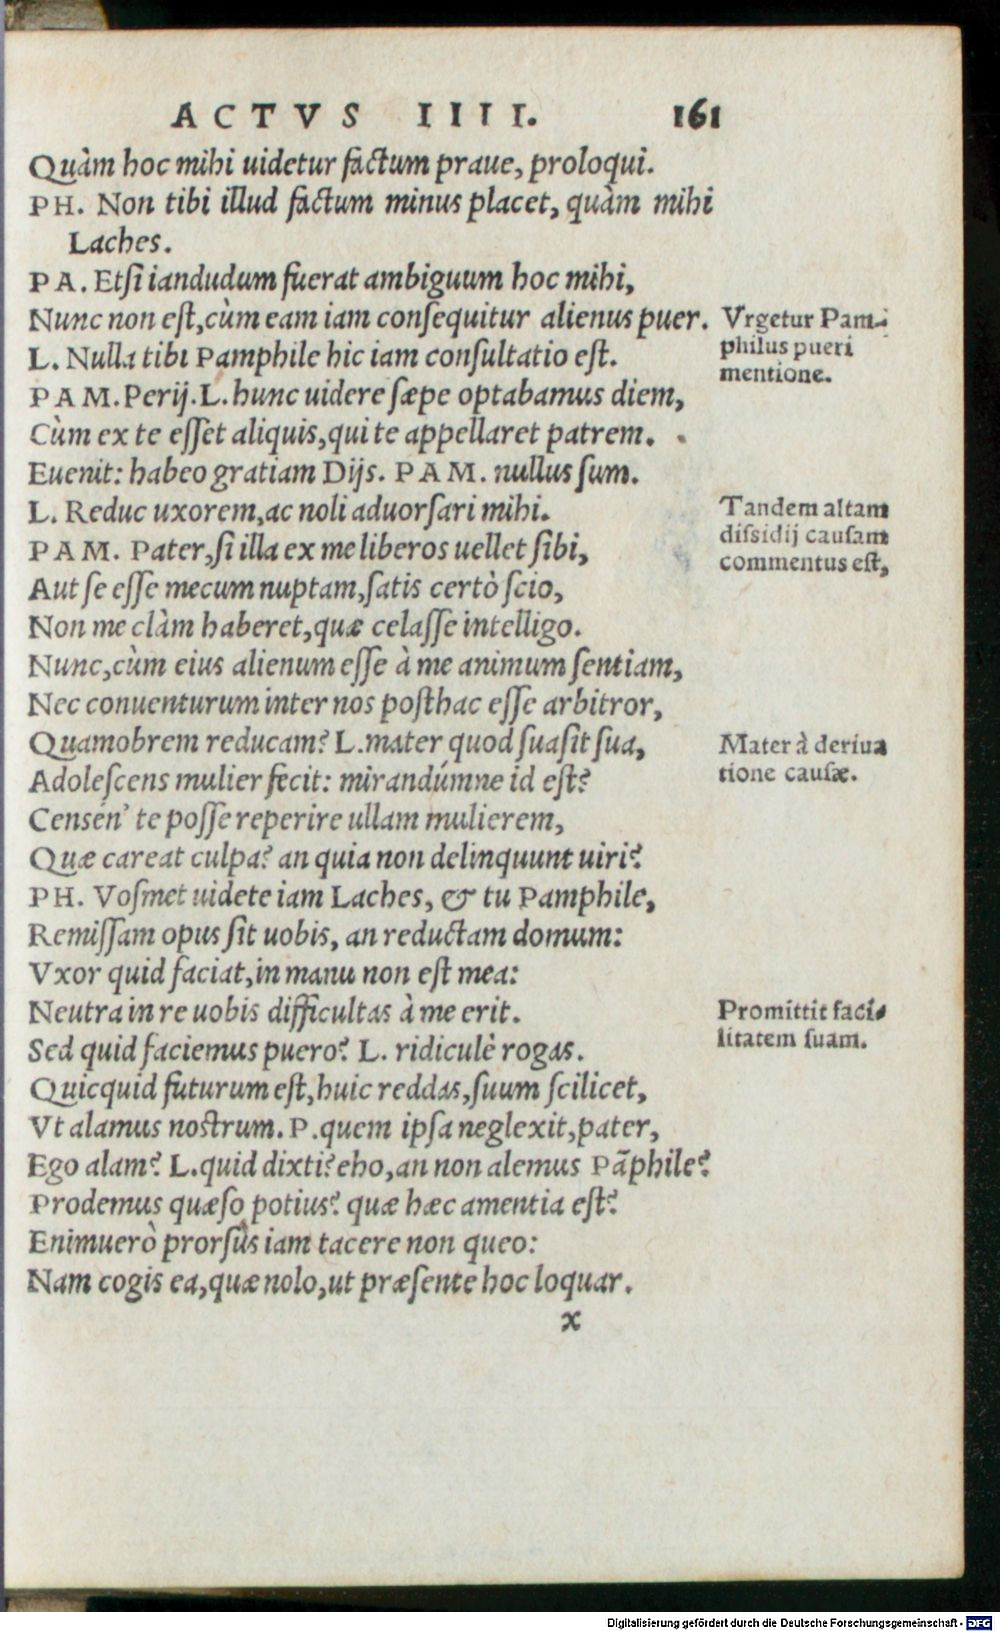 ACTVS IIII. 161
Quàm hoc mihi uidetur factum praue, proloqui.
PH. Non tibi illud factum minus placet, quàm mihi
Laches.
PA. Etſi iandudum fuerat ambiguum hoc mihi,
Nunc non eſt, cùm eam iam conſequitur alienus puer.
Vrgetur Pam-
philus pueri
mentione.
L. Nulla tibi Pamphile hic iam conſultatio eſt.
PAM. Perij. L. hunc uidere ſæpe optabamus diem,
Cùm ex te eſſet aliquis, qui te appellaret patrem.
Euenit: habeo gratiam Dijs. PAM. nullus ſum.
L. Reduc uxorem, ac noli aduorſari mihi.
Tandem altam
diſsidij cauſam
commentus eſt,
PAM. Pater, ſi illa ex me liberos uellet ſibi,
Aut ſe eſſe mecum nuptam, ſatis certò ſcio,
Non me clàm haberet, quæ celaſſe intelligo.
Nunc, cùm eius alienum eſſe à me animum ſentiam,
Nec conuenturum inter nos poſthac eſſe arbitror,
Quamobrem reducam? L. mater quod ſuaſit ſua,
Mater à deriua
tione cauſæ.
Adoleſcens mulier fecit: mirandúmne id eſt?
Censén' te poſſe reperire ullam mulierem,
Quæ careat culpa? an quia non delinquunt uiri?
PH. Voſmet uidete iam Laches, & tu Pamphile,
Remiſſam opus ſit uobis, an reductam domum:
Vxor quid faciat, in manu non eſt mea:
Neutra in re uobis difficultas à me erit.
Promittit faci-
litatem ſuam.
Sed quid faciemus puero? L. ridiculè rogas.
Quicquid futurum eſt, huic reddas, ſuum ſcilicet,
Vt alamus noſtrum. P. quem ipſa neglexit, pater,
Ego alam? L. quid dixti? eho, an non alemus Pãphile?
Prodemus quæſo potius? quæ hæc amentia eſt?
Enimuerò prorſùs iam tacere non queo:
Nam cogis ea, quæ nolo, ut præſente hoc loquar.
x
Digitalisierung gefördert durch die Deutsche Forschungsgemeinschaft - DFG